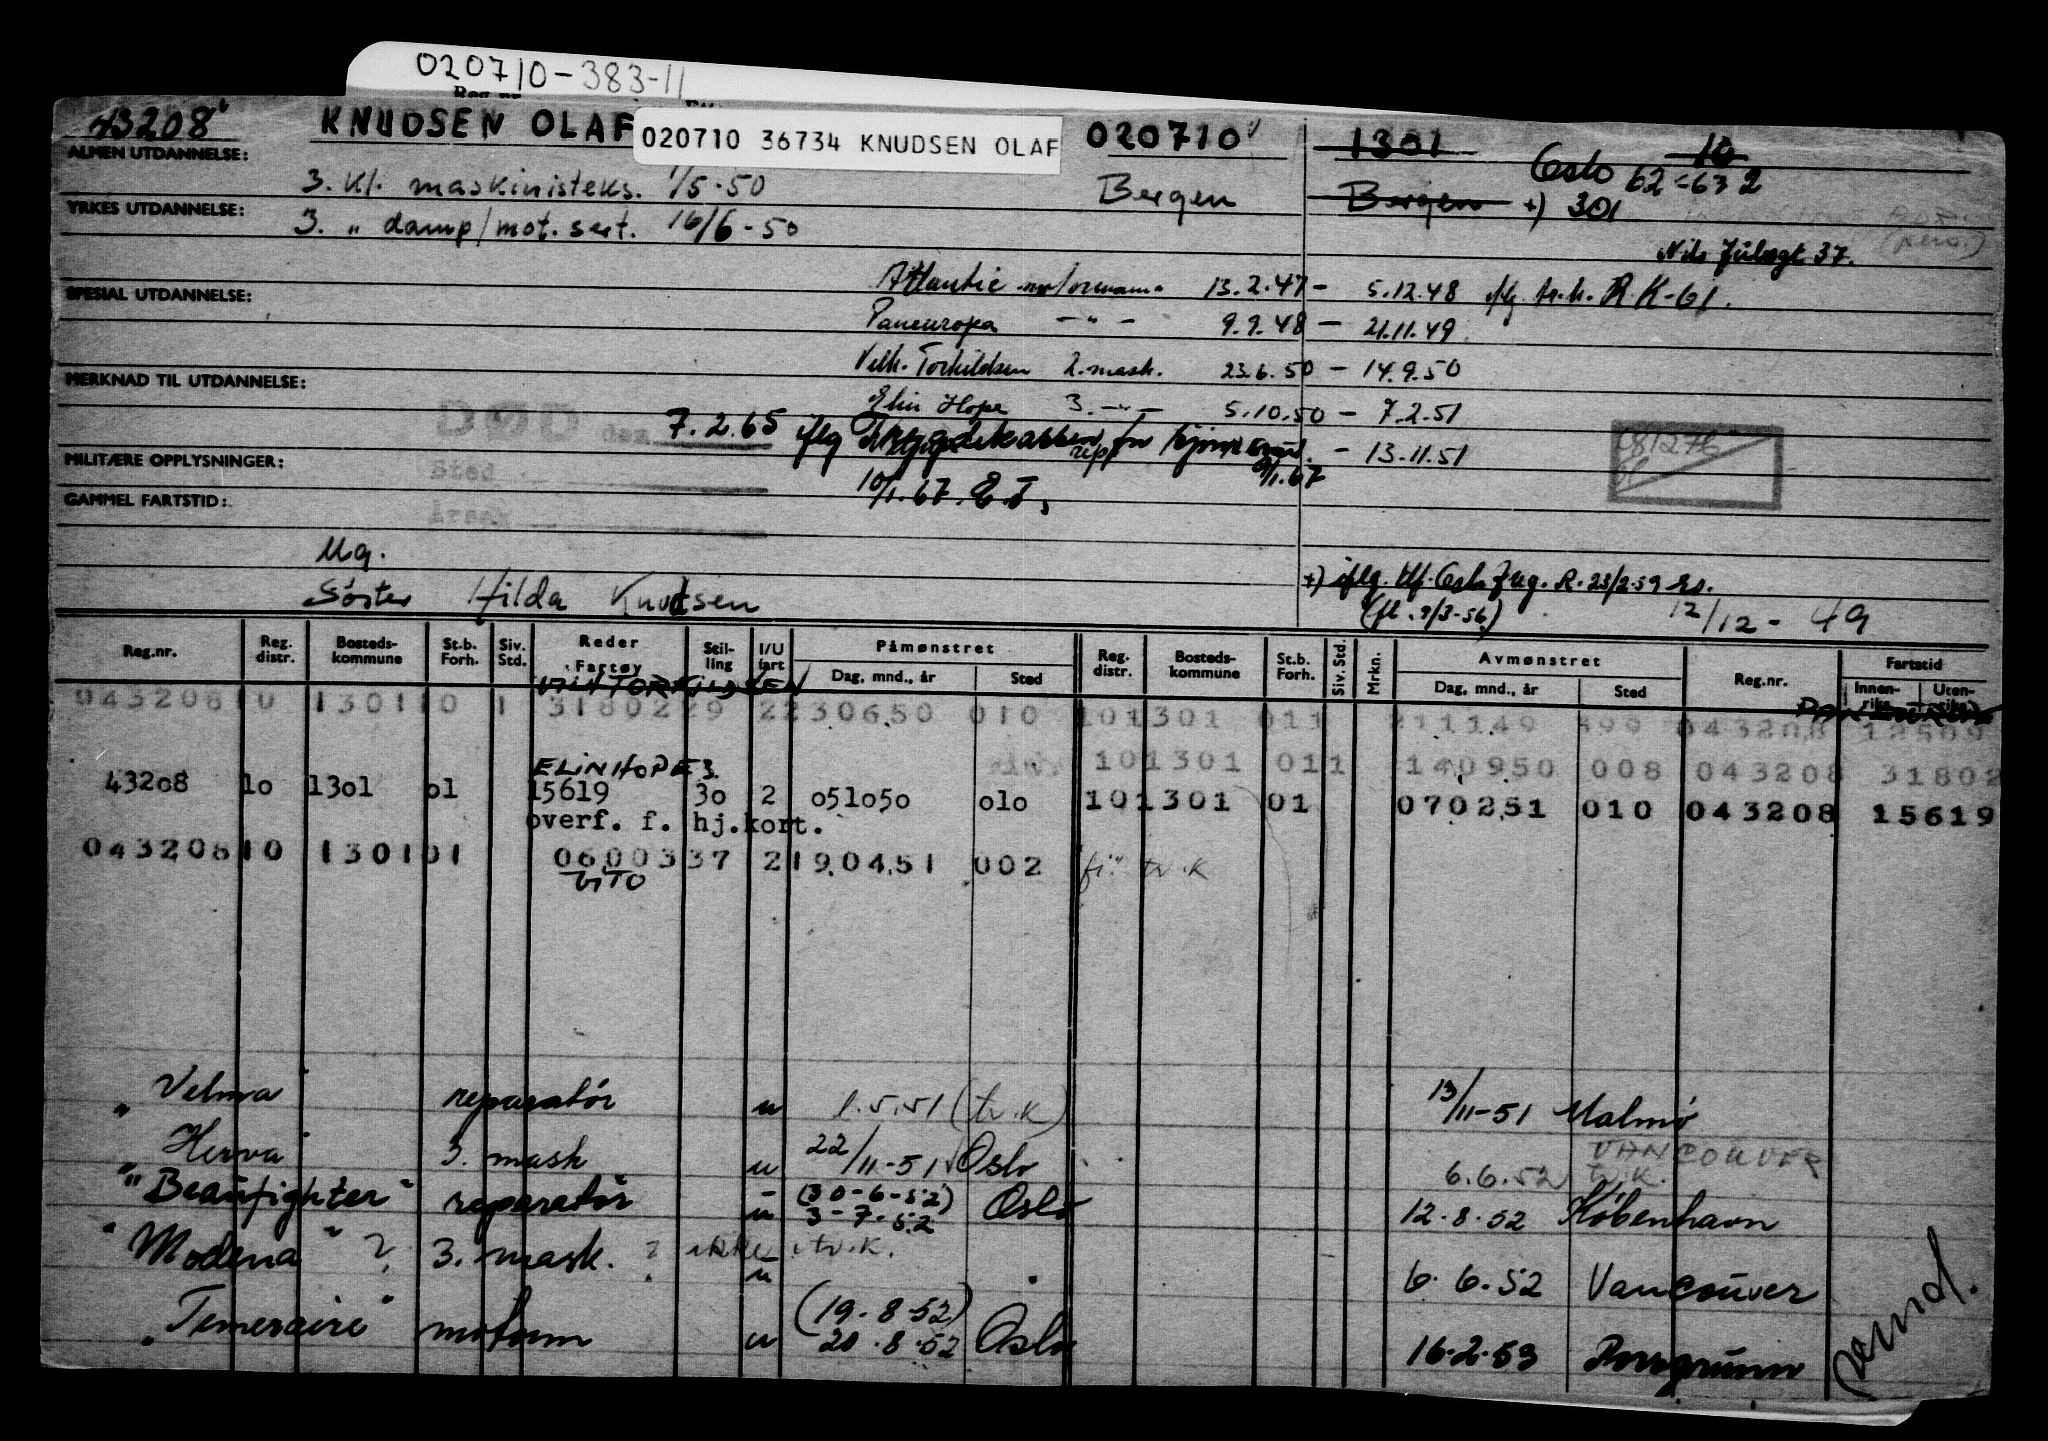 020710-383-11
43208 KNUDSEN OLAF 020710 36734 KNUDSEN OLAF 020710 1301 10
ALMEN UTDANNELSE: 3. kl. maskinisteks. 1/5-50 Bergen Bergen Oslo 62-63 2
+) 301
YRKES UTDANNELSE: 3. „ damp/mot. sert. 16/6-50
Nils Juelsgt 37.
SPESIAL UTDANNELSE: Atlantic motormann 13.2.47 - 5.12.48 iflg. tr.k. R.K-61.
Paneuropa - " - 9.9.48 - 21.11.49
Vilh. Torkildsen 2. mask. 23.6.50 - 14.9.50
MERKNAD TIL UTDANNELSE: Elin Hope 3. - " - 5.10.50 - 7.2.51
DØD den 7.2.65 iflg Trygdekassen for sjømenn. - 13.11.51
081276
MILITÆRE OPPLYSNINGER: Sted 9/1.67
10/1.67. E.T.
GAMMEL FARTSTID: Årsak
Ug.
Søster Hilda Knudsen
+) iflg. tlf. Oslo Reg. R. 23/2-59
(fl. 9/3-56) 12/12-49
Reg.nr. Reg. distr. Bosteds- kommune St.b. Forh. Siv. Std. Reder Fartøy Stil- ling I/U fart Påmønstret Dag, mnd., år Sted Reg. distr. Bosteds- kommune St.b. Forh. Siv. Std. Mrkn. Avmønstret Dag, mnd., år Sted Reg.nr. Fartstid Innen- riks Uten- riks
PAN EUROPA
043208 10 1301 10 1 31802 29 2 230650 010 10 1301 01 1 211149 399 043208 12509
10 1301 01 1 140950 008 043208 31802
ELIN HOPE 3.
43208 10 1301 01 15619 30 2 051050 010 10 1301 01 070251 010 043208 15619
overf. f. hj.kort.
043208 10 1301 01 06003 37 2 190451 002 tv.k
VITO
„ Velma reparatør u 1.5.51 (tv.k) 13/11-51 Malmö
„ Herva 3. mask u 22/11-51 Oslo 6.6.52 VANCOUVER tv.k.
"Beaufighter" reparatør u (30-6-52) 3-7-52 Oslo 12.8.52 København
"Modena" ? 3. mask. ? ikke i tv.k. u 6.6.52 Vancouver
„Temeraire" motorm u (19.8.52) 20.8.52 Oslo 16.2.53 Porsgrunn